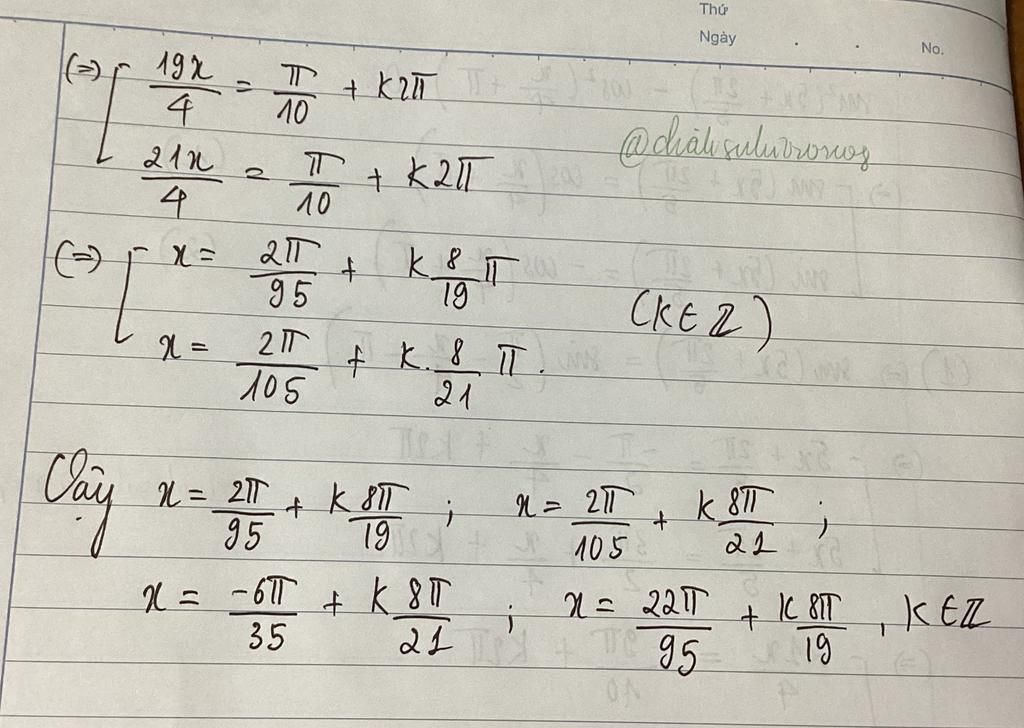 Thứ
Ngày . . No.
(=) [ 19x/4 = π/10 + k2π
21x/4 = π/10 + k2π
(=) [ x = 2π/95 + k 8/19 π
x = 2π/105 + k. 8/21 π.
(k ∈ ℤ)
Vậy x = 2π/95 + k 8π/19 ; x = 2π/105 + k 8π/21 ;
x = -6π/35 + k 8π/21 ; x = 22π/95 + k 8π/19 , k ∈ ℤ